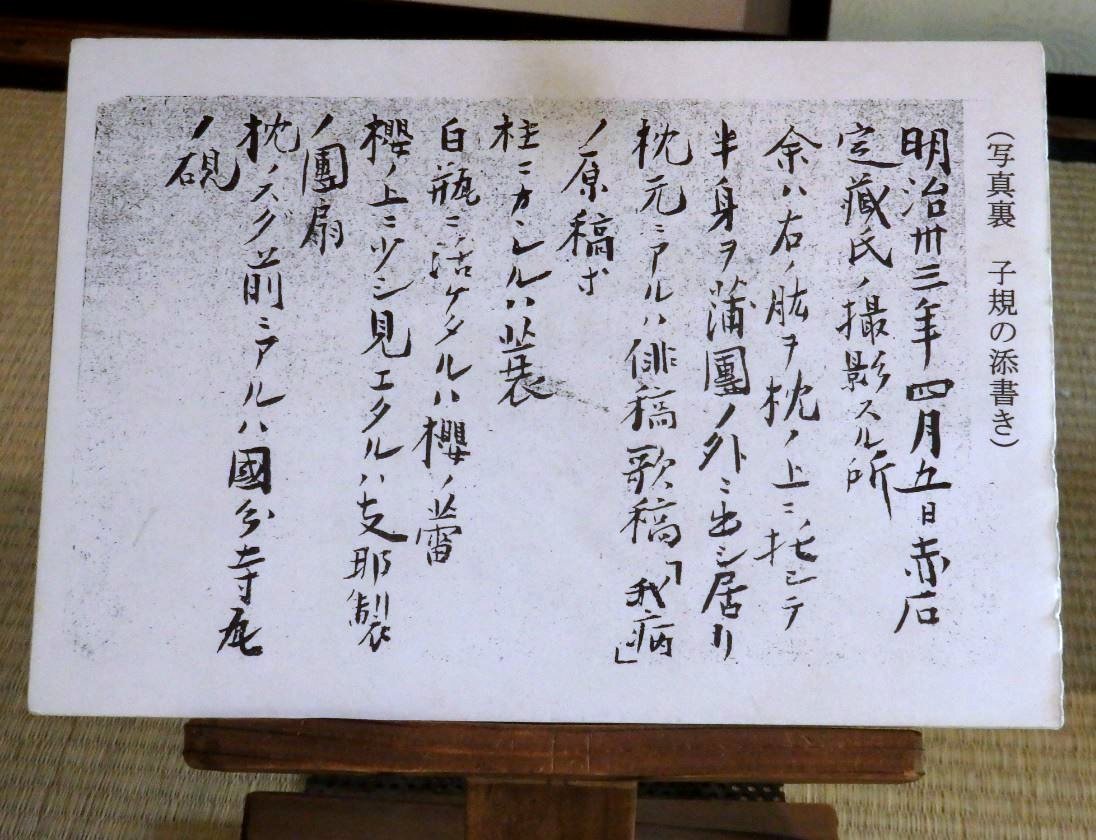 (写真裏　子規の添書き)
明治卅三年四月五日赤石
定藏氏ノ撮影スル所
余ハ右ノ肱ヲ枕ノ上ニ托シテ
半身ヲ蒲團ノ外ニ出シ居リ
枕元ニアルハ俳稿歌稿「我病」
ノ原稿等
柱ニカヽレルハ蓑
白瓶ニ活ケタルハ櫻ノ蕾
櫻ノ上ニ少シ見エタルハ支那製
ノ團扇
枕ノスグ前ニアルハ國分寺瓦
ノ硯